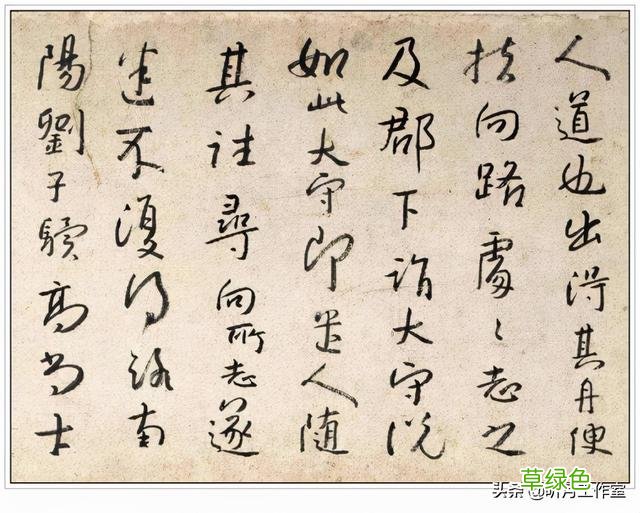 人道也出得其舟便
扶向路處〻志之
及郡下詣大守説
如此大守即遣人隨
其往尋向所志遂
迷不復得路南
陽劉子驥高尚士
草绿色
头条 @工作室